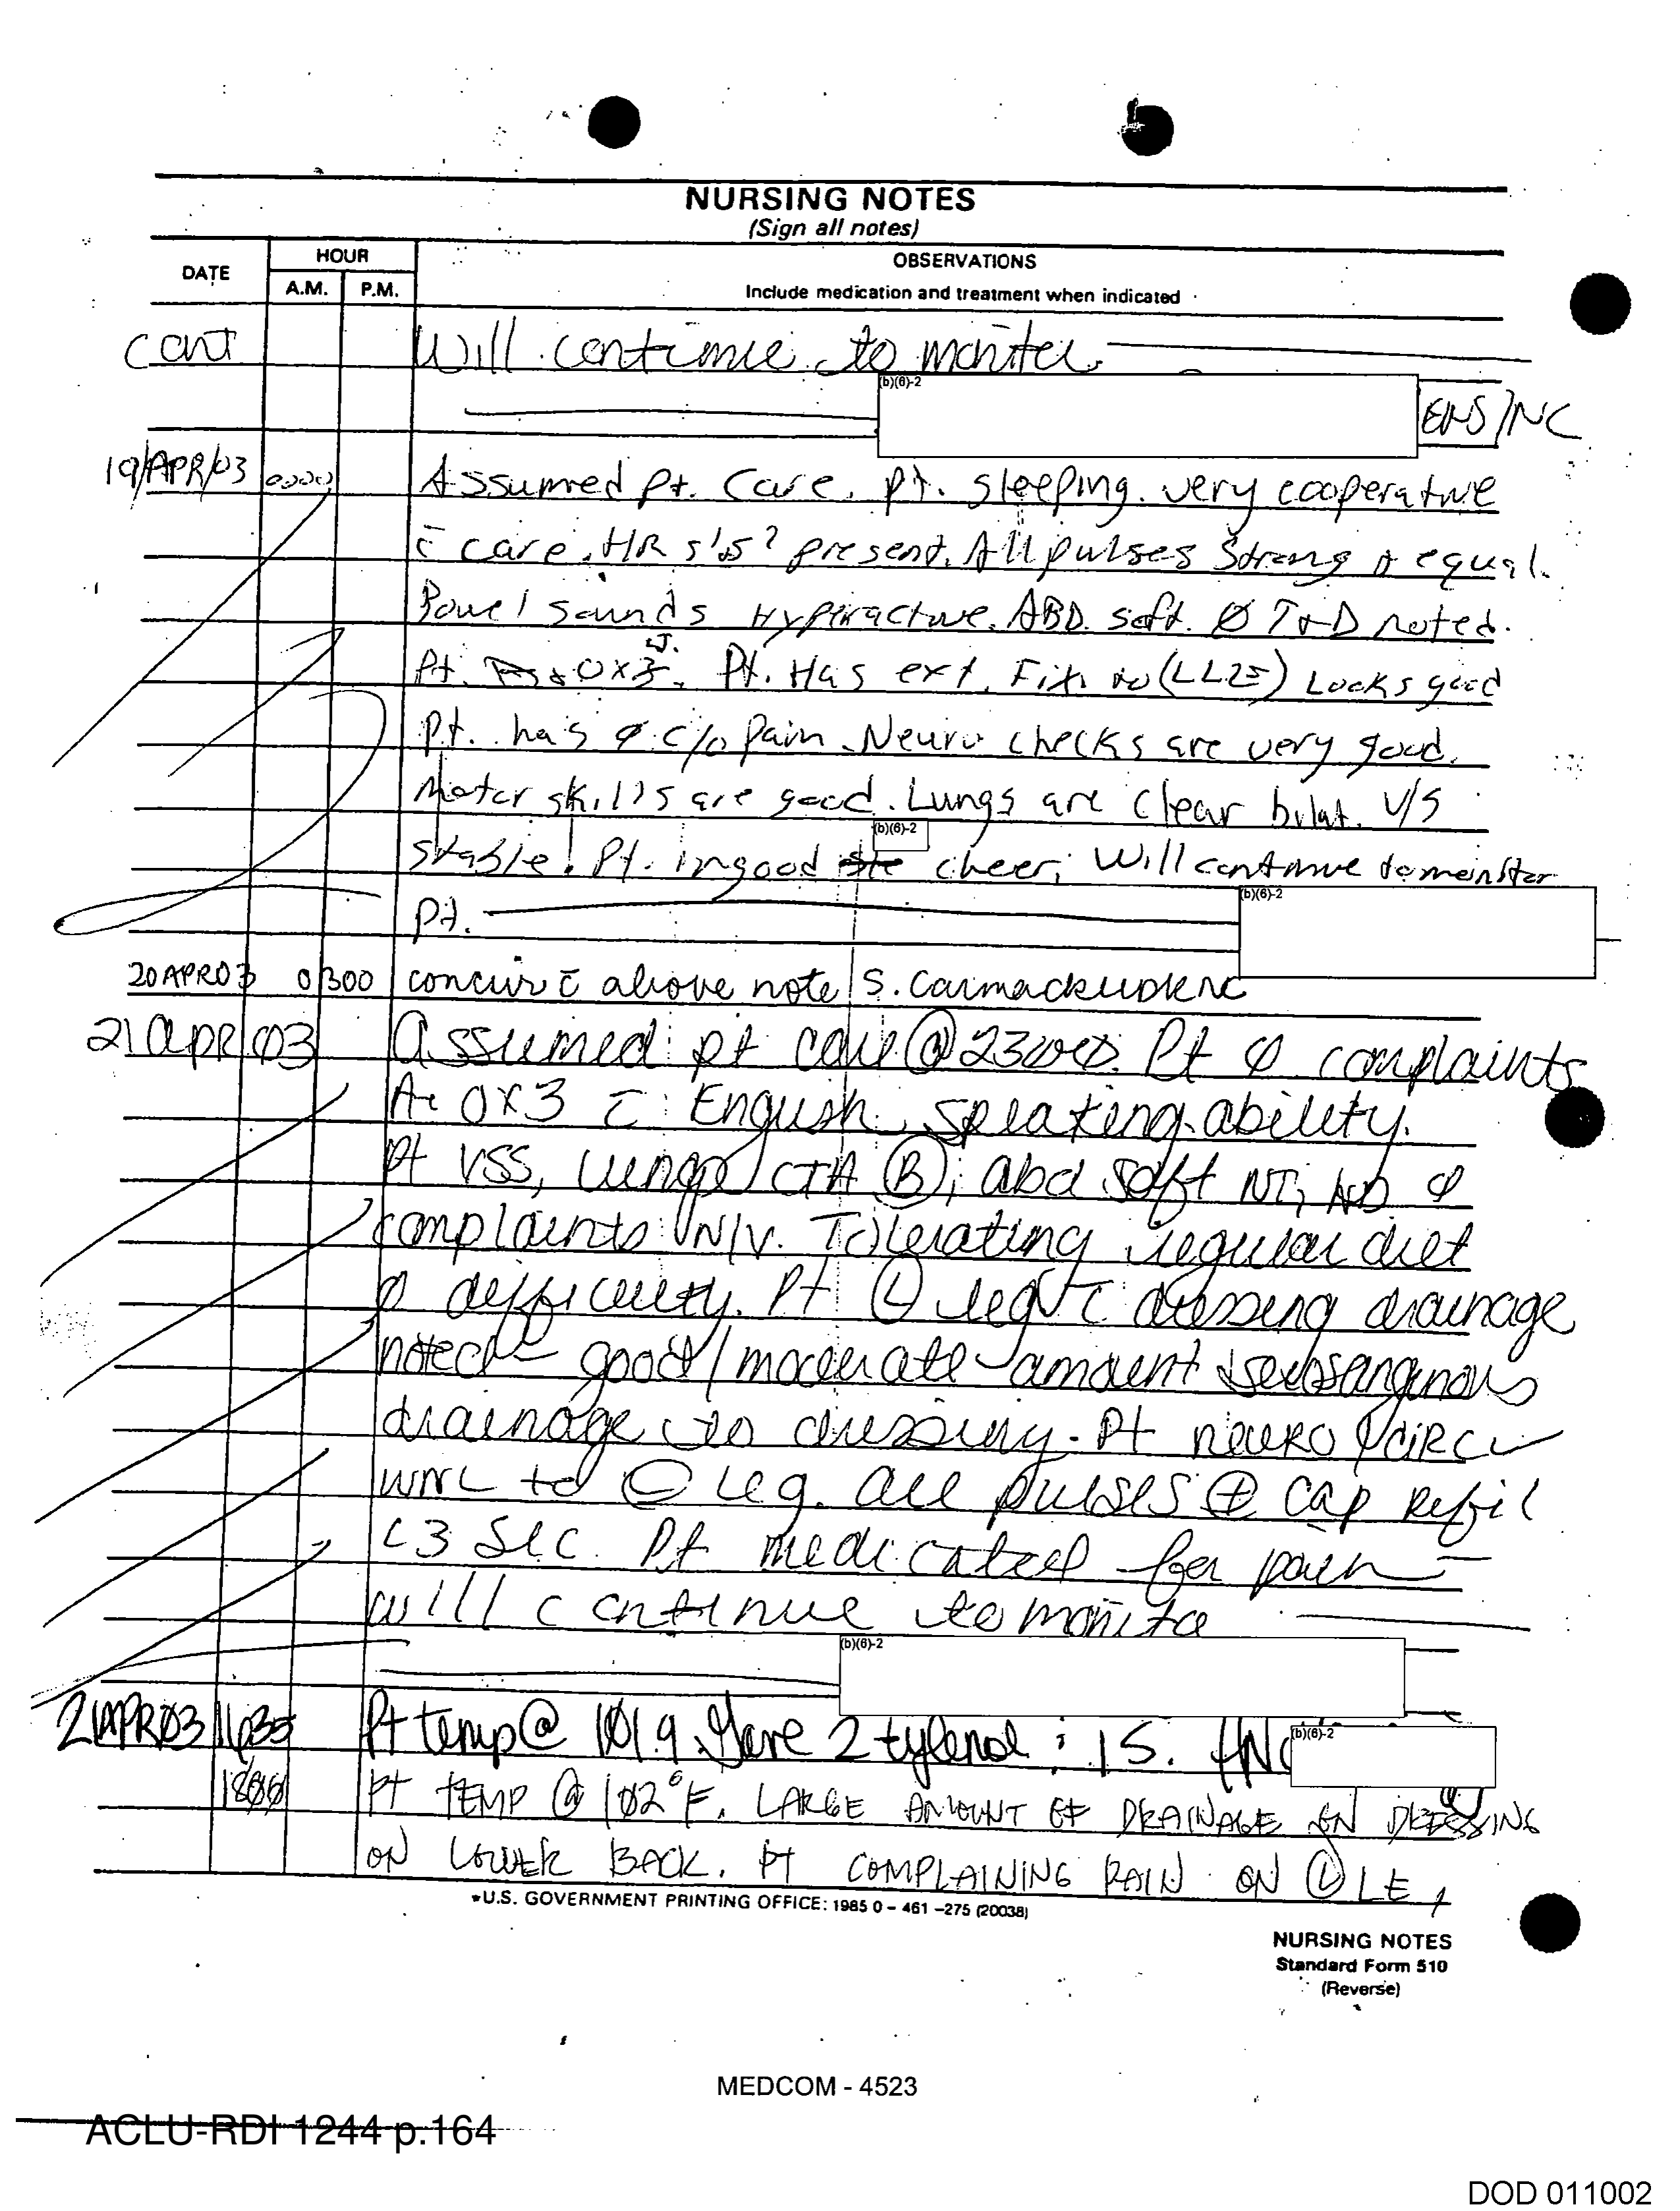 NURSING NOTES
(Sign all notes)
DATE
HOUR
A.M. P.M.
OBSERVATIONS
Include medication and treatment when indicated
cont Will continue to monitor
(b)(6)-2
ENS/NC
19/APR/03 Assumed pt. care. pt. sleeping. very cooperative
c̄ care. HR present. All pulses strong + equal.
Bowel sounds Hyperactive. ABD. soft. Ø T+D noted.
Pt. 0x3. Pt. Has ext. Fix. to (LLE) Looks good
Pt. has Ø c/o pain. Neuro checks are very good.
Motor skills are good. Lungs are clear bilat. V/S
(b)(6)-2
stable. Pt. in good cheer; Will continue to monitor
pt.
(b)(6)-2
20APR03 0300 concur c̄ above note S. Carmack
21 APR 03 Assumed pt care @ 2300. Pt Ø complaints
A+Ox3 c̄ English speaking ability.
Pt VSS, lungs CTA (B), abd soft NT, ND Ø
complaints N/V. Tolerating regular diet
Ø difficulty. Pt (L) leg c̄ dressing drainage
noted - good/moderate amount
drainage to dressing. Pt neuro/circ
WNL to (L) leg. all pulses (+) cap refil
<3 sec. Pt medicated for pain -
will continue to monitor
(b)(6)-2
21APR03 1635 Pt temp @ 101.9. Gave 2 tylenol : IS.
(b)(6)-2
1800 PT TEMP @ 102°F. LARGE AMOUNT OF DRAINAGE ON DRESSING
ON LOWER BACK. PT COMPLAINING PAIN ON (L) LE,
*U.S. GOVERNMENT PRINTING OFFICE: 1985 0 - 461 -275 (20038)
NURSING NOTES
Standard Form 510
(Reverse)
MEDCOM - 4523
ACLU-RDI 1244 p.164
DOD 011002